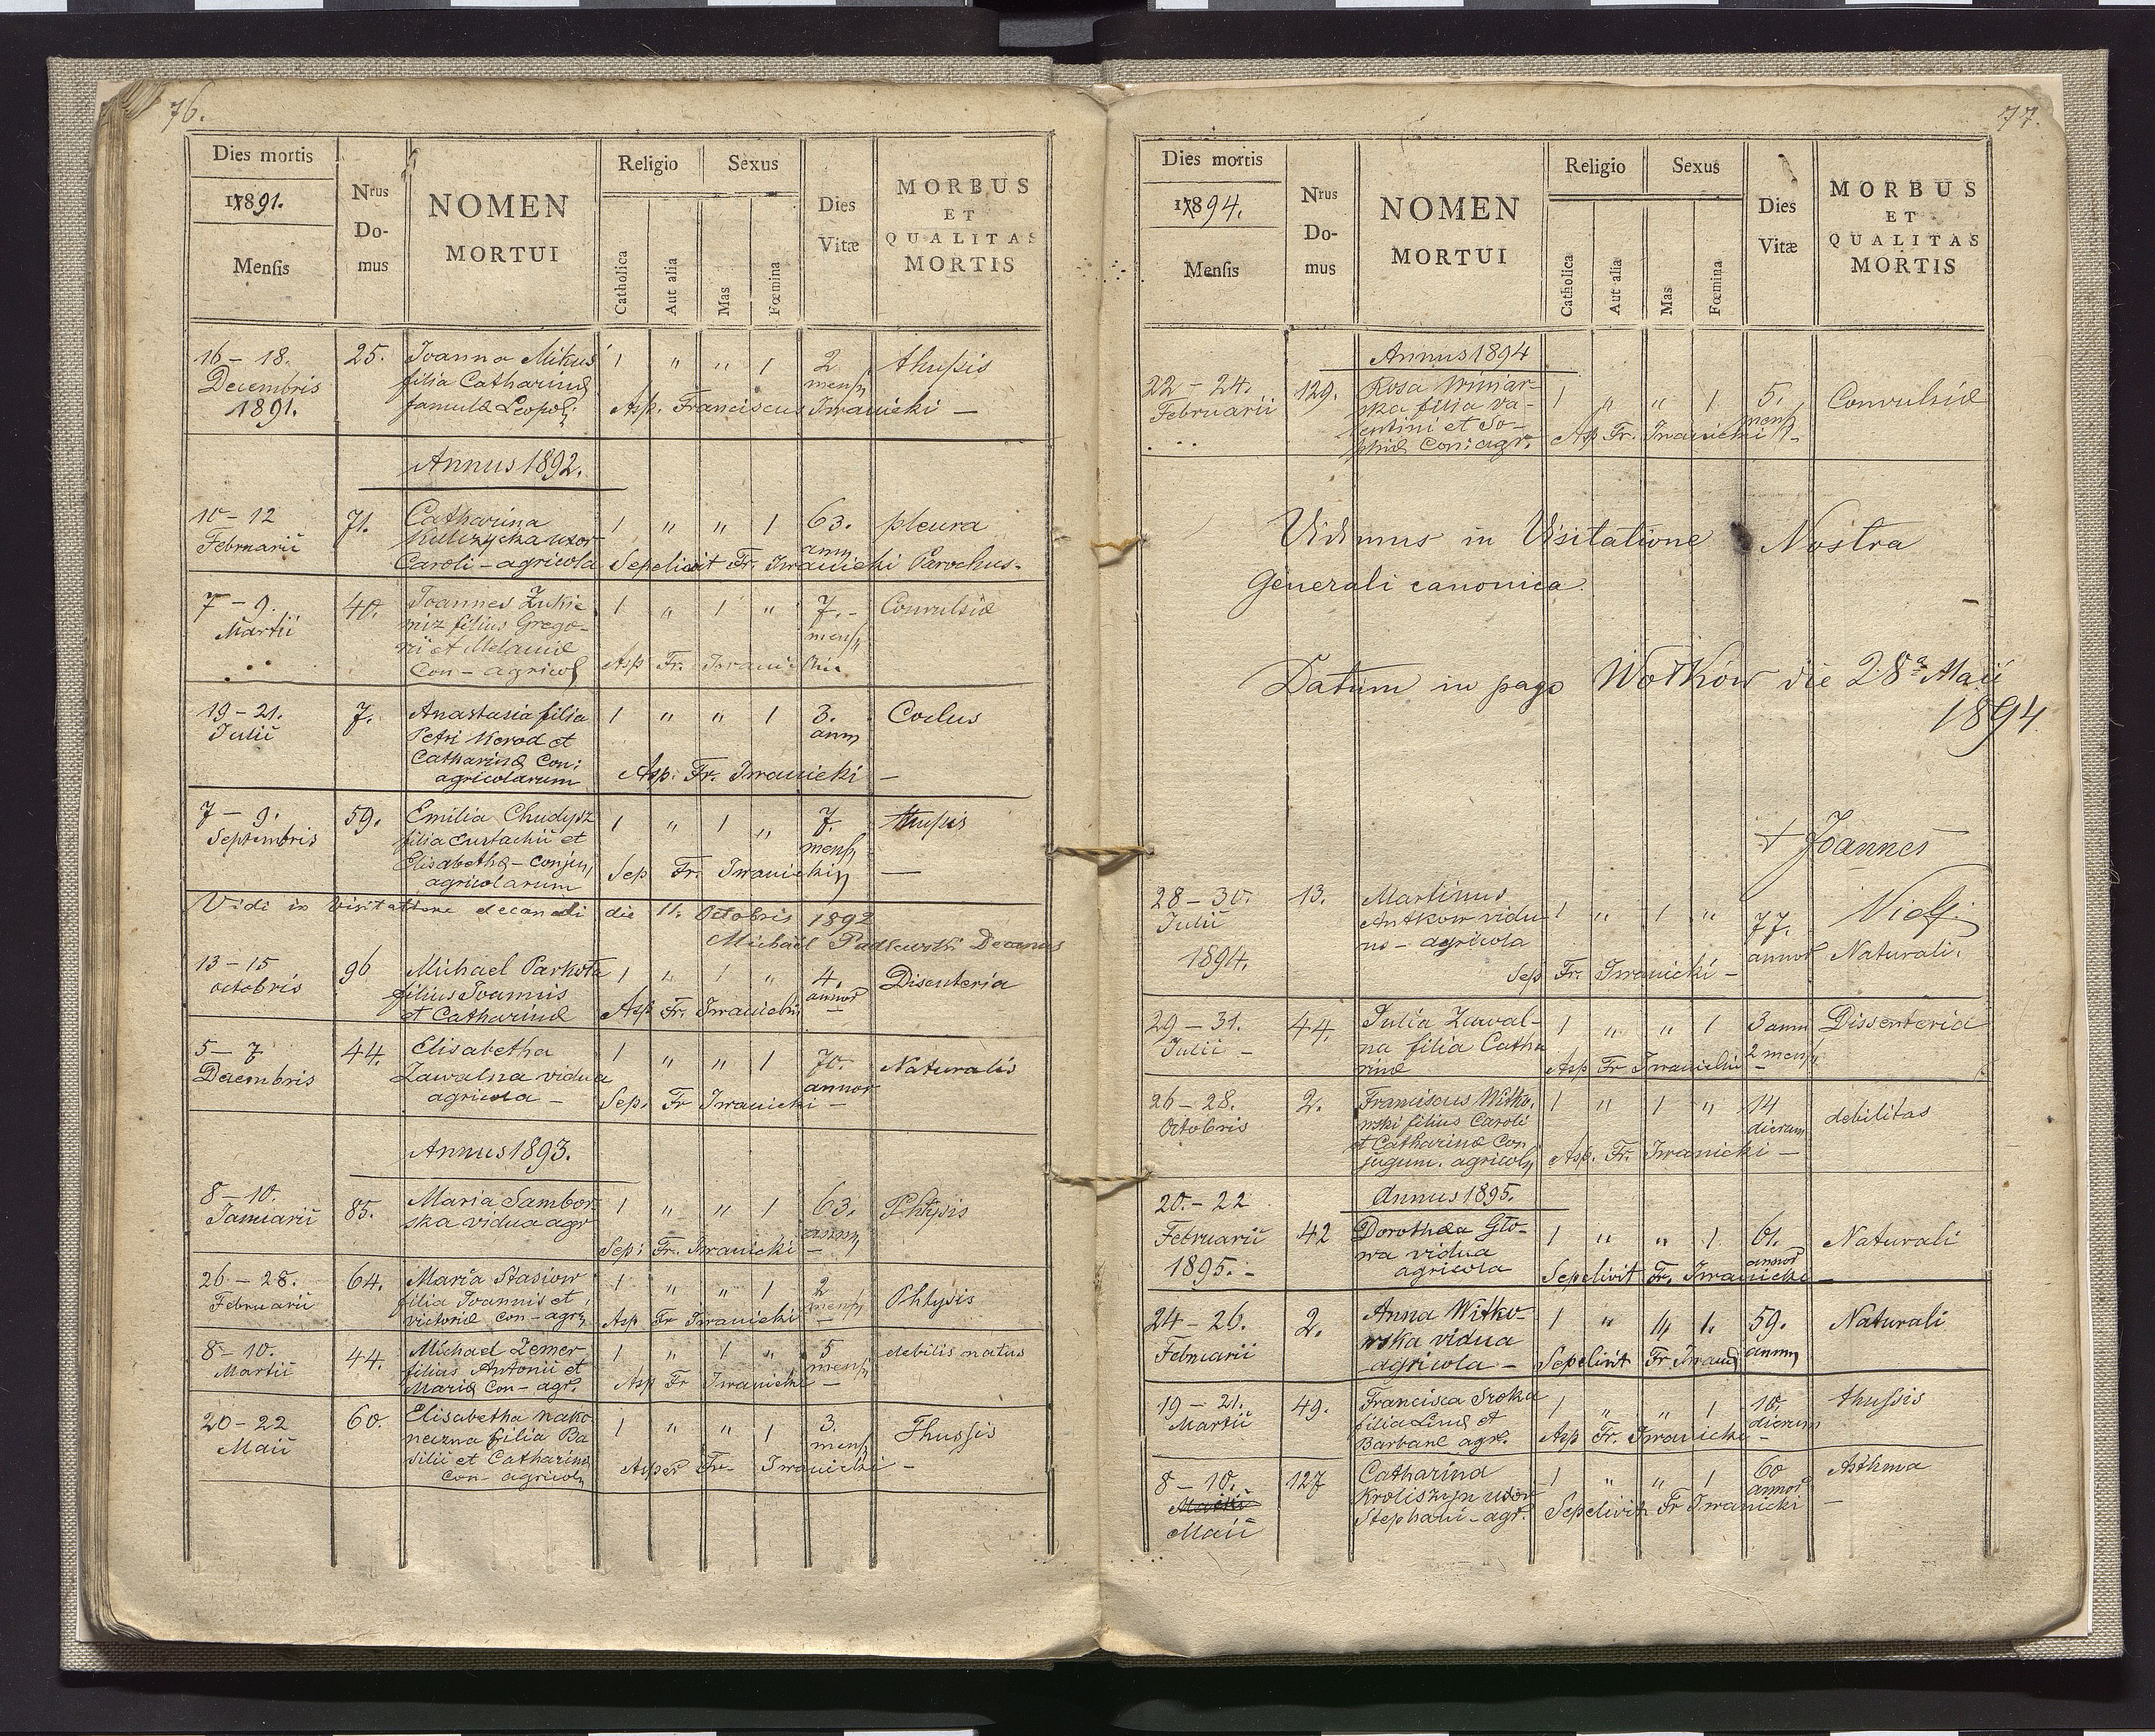 76.
Dies mortis
1891.
Mensis
Nrus
Do-
mus
NOMEN
MORTUI
Religio
Sexus
Catholica
Aut alia
Mas
Fœmina
Dies
Vitæ
MORBUS
ET
QUALITAS
MORTIS
16 – 18. 25. Joanna Mikus 1 " " 1 2 thussis
Decembris filia Catharinæ mens
1891. famulæ Leopol: Asp. Franciscus Iwanicki –
Annus 1892.
10 – 12 71. Catharina 1 " " 1 63. pleura
Februarii Kulczycka uxor ann
Caroli – agricola Sepelivit Fr. Iwanicki Parochus.
7 – 9. 40. Joannes 1 " 1 " 7. – Convulsiæ
Martii filius Grego- mens
rii et Melaniæ
Con – agricol Asp Fr. Iwanicki
19 – 21. 7. Anastasia filia 1 " " 1 3. Coclus
Julii Petri Kerod et ann
Catharinæ Con:
agricolarum Asp: Fr. Iwanicki –
7 – 9. 59. Emilia Chudysz 1 " 1 " 7. thussis
Septembris filia Eustachii et mens
Elisabethæ – conjug
agricolarum Sep Fr. Iwanicki –
Vidi in visitatione decanali die 11. Octobris 1892
Michael Padlewski Decanus
13 – 15 96 Michael Parkota 1 " 1 " 4. Disenteria
octobris filius Joannis annor
et Catharinæ Asp Fr. Iwanicki –
5 – 7 44. Elisabetha 1 " " 1 70. Naturalis
Decembris Zawalna vidua annor
agricola – Sep. Fr Iwanicki –
Annus 1893.
8 – 10. 85. Maria Sambor- 1 " " 1 63. Phtysis
Januarii ska vidua agr ann
Sep: Fr. Iwanicki –
26 – 28. 64. Maria Stasiow 1 " " 1 2 Phtysis
Februarii filia Joannis et mens
Victoriæ Con – agr. Asp Fr Iwanicki –
8 – 10. 44. Michael Zemer 1 " 1 " 5 debilis natus
Martii filius Antonii et mens
Mariæ Con – agr. Asp Fr Iwanicki –
20 – 22 60. Elisabetha Nako- 1 " " 1 3. Thussis
Maii neczna filia Ba- mens
silii et Catharinæ Asper Fr. Iwanicki –
Con – agricol
77.
Dies mortis
1894.
Mensis
Nrus
Do-
mus
NOMEN
MORTUI
Religio
Sexus
Catholica
Aut alia
Mas
Fœmina
Dies
Vitæ
MORBUS
ET
QUALITAS
MORTIS
Annus 1894
22 – 24. 129. Rosa Winiar- 1 " " 1 5. Convulsiæ
Februarii ska filia Va- mens
lentini et So- Asp Fr. Iwanicki –
phiæ Con: agr.
Vidimus in Visitatione Nostra
Generali canonica.
Datum in pago Wołków die 28a Maii
1894
+ Joannes
28 – 30. 13. Martinus
Julii Antkow vidu- 1 " 1 " 77.
1894. us – agricola annor Naturali.
Sep Fr. Iwanicki –
29 – 31. 44. Julia Zawal- 1 " " 1 3 ann Dissenteria
Julii – na filia Catha- 2 mens
rinæ Asp Fr Iwanicki –
26 – 28. 2. Franciscus Witko- 1 " 1 " 14 debilitas
Octobris wski filius Caroli dierum
et Catharinæ Con-
jugum. agricol Asp. Fr. Iwanicki –
Annus 1895.
20. – 22
Februarii 42 Dorothea Gło- 1 " " 1. 61. Naturali
1895. – wa vidua annor
agricola Sepelivit Fr. Iwanicki –
24 – 26. 2. Anna Witko- 1 " " 1. 59. Naturali
Februarii wska vidua annor
agricola – Sepelivit Fr. Iwanicki
19 – 21. 49. Francisca Sroka 1 " " 1 10 thussis
Martii filia et dierum
Barbaræ agr. Asp Fr. Iwanicki –
8 – 10. 127 Catharina 1 " " 1 60 Asthma
Martii Kroliszyn uxor annor
Maii Stephani – agr. Sepelivit Fr Iwanicki –